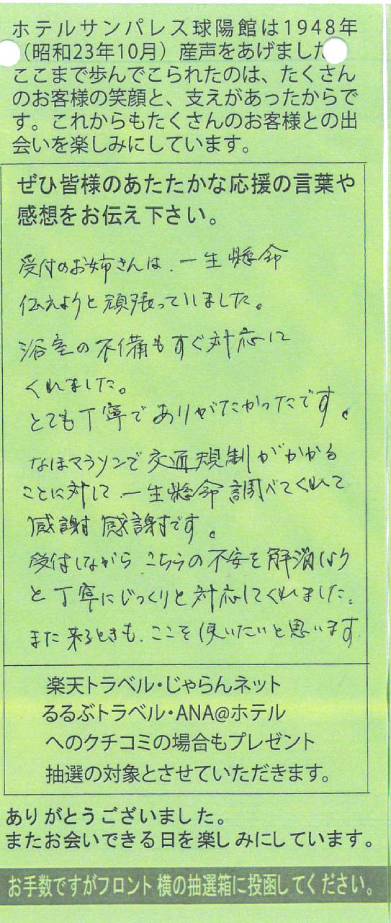 ホテルサンパレス球陽館は1948年
（昭和23年10月）産声をあげました
ここまで歩んでこられたのは、たくさん
のお客様の笑顔と、支えがあったからで
す。これからもたくさんのお客様との出
会いを楽しみにしています。
ぜひ皆様のあたたかな応援の言葉や
感想をお伝え下さい。
受付のお姉さんは、一生懸命
伝えようと頑張っていました。
浴室の不備もすぐ対応して
くれました。
とても丁寧でありがたかったです。
なはマラソンで交通規制がかかる
ことに対して一生懸命調べてくれて
感謝感謝です。
受付しながらこちらの不安を解消しよう
と丁寧にじっくりと対応してくれました。
また来るときも、ここを使いたいと思います
楽天トラベル・じゃらんネット
るるぶトラベル・ANA@ホテル
へのクチコミの場合もプレゼント
抽選の対象とさせていただきます。
ありがとうございました。
またお会いできる日を楽しみにしています。
お手数ですがフロント横の抽選箱に投函してください。